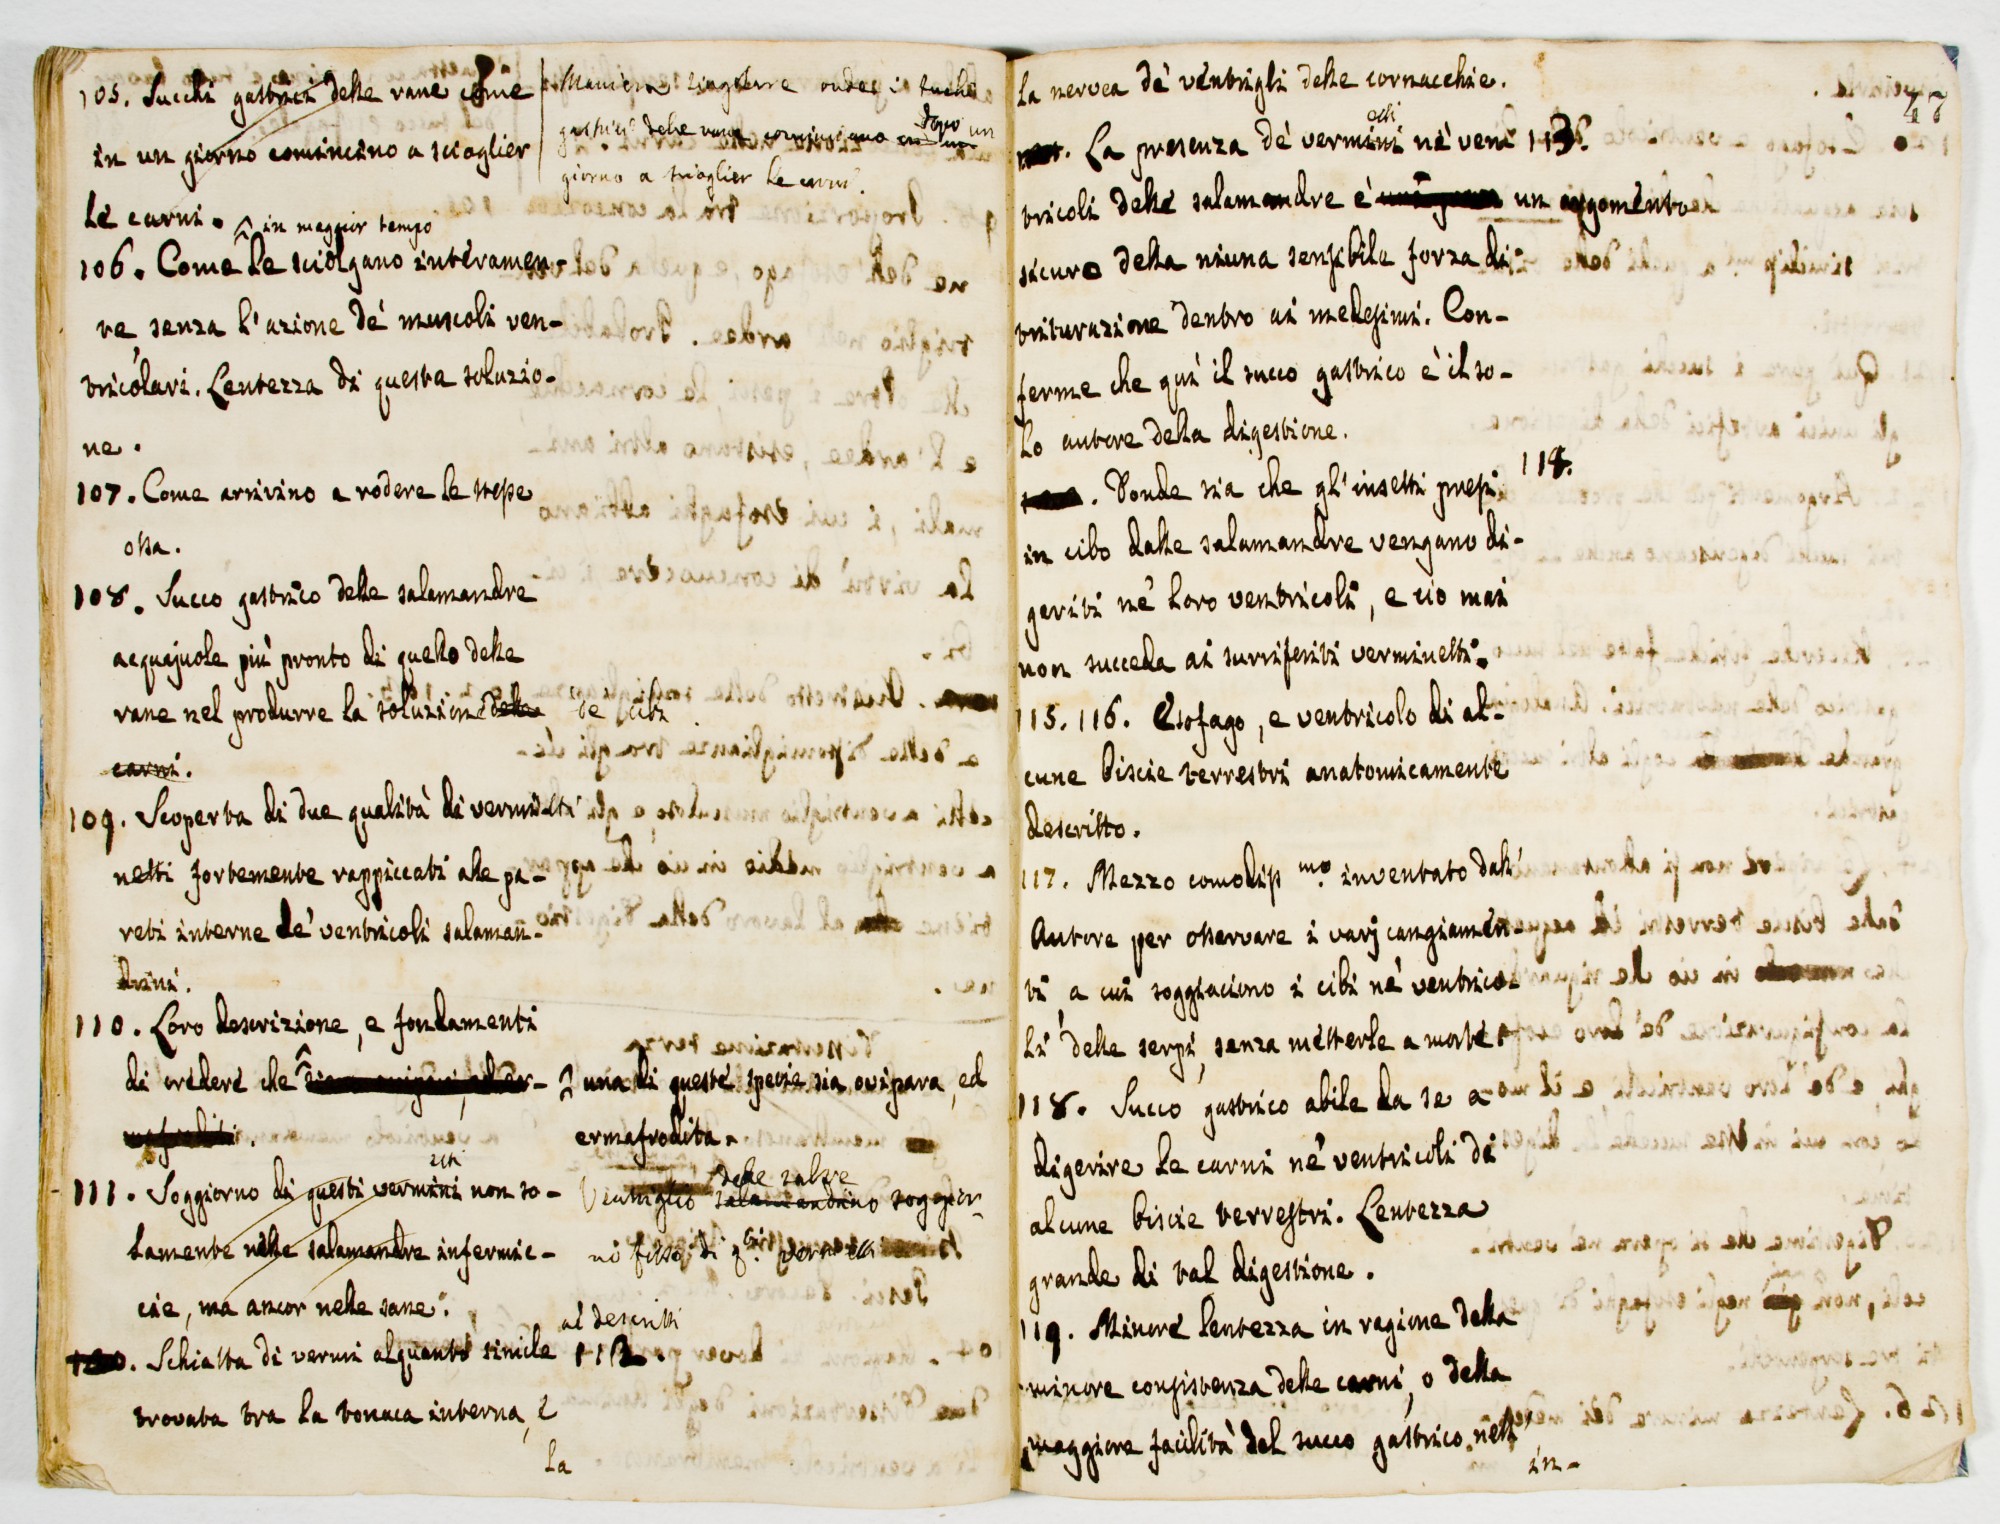 105. Succhi gastrici delle rane come
in un giorno comincino a scioglier
le carni.
Maniera singolare onde i succhi
gastrici delle rane cominciano dopo un
giorno a scioglier le carni.
in maggior tempo
106. Come le sciolgano interamen-
te, senza l'azione de' muscoli ven-
tricolari. Lentezza di questa soluzio-
ne.
107. Come arrivino a rodere le stesse
ossa.
108. Succo gastrico delle salamandre
acquajuole più pronto di quello delle
rane nel produrre la soluzione delle de' cibi
carni.
109. Scoperta di due qualità di vermi
netti fortemente rappiccati alle pa-
reti interne de' ventricoli salaman-
drini.
110. Loro descrizione, e fondamenti
di credere che una di queste specie sia ovipara, ed
ermafrodita.
111. Soggiorno di questi vermini non so-
lamente nelle salamandre infermic-
cie, ma ancor nelle sane.
Ventriglio salamandrino delle salse soggior-
no fisso di q.ti vermetti
ai descritti
Schiatta di vermi alquanto simile 112.
trovata tra la tonaca interna, e
la
47
la nervea de' ventrigli delle cornacchie.
La presenza de' vermini ne' ven 113.
tricoli delle salamandre è un argomento
sicuro della niuna sensibile forza di
triturazione dentro ai medesimi. Con-
ferme che quì il succo gastrico è il so-
lo autore della digestione.
Donde sia che gl'insetti presi 114.
in cibo dalle salamandre vengano di-
geriti ne' loro ventricoli, e ciò mai
non succeda ai surriferiti verminetti.
115. 116. Esofago, e ventricolo di al-
cune biscie terrestri anatomicamente
descritto.
117. Mezzo comodiss.mo inventato dall'
Autore per osservare i varj cangiamen-
ti, a cui soggiaciono i cibi ne' ventrico-
li delle serpi, senza metterle a morte.
118. Succo gastrico abile da se a
digerire le carni ne' ventricoli di
alcune biscie terrestri. Lentezza
grande di tal digestione.
119. Minore lentezza in ragione della
minore consistenza delle carni, o della
maggiore facilità del succo gastrico nell'
in-